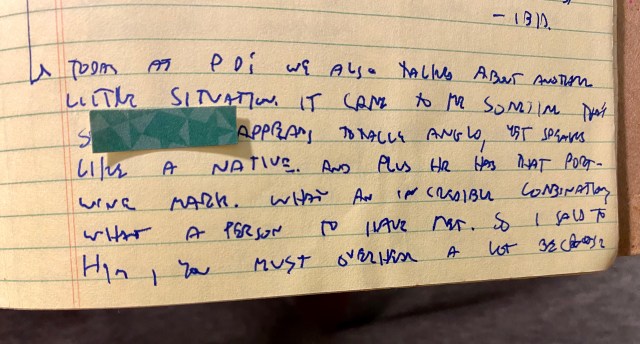 — IBID.
TODAY AT PDI WE ALSO TALKED ABOUT ANOTHER
LITTLE SITUATION. IT CAME TO ME THAT
S APPEARS TOTALLY ANGLO, YET SPEAKS
LIKE A NATIVE. AND PLUS HE HAS THAT PORT-
WINE MARK. WHAT AN INCREDIBLE COMBINATION,
WHAT A PERSON TO HAVE MET. SO I SAID TO
HIM, YOU MUST OVERHEAR A LOT BECAUSE